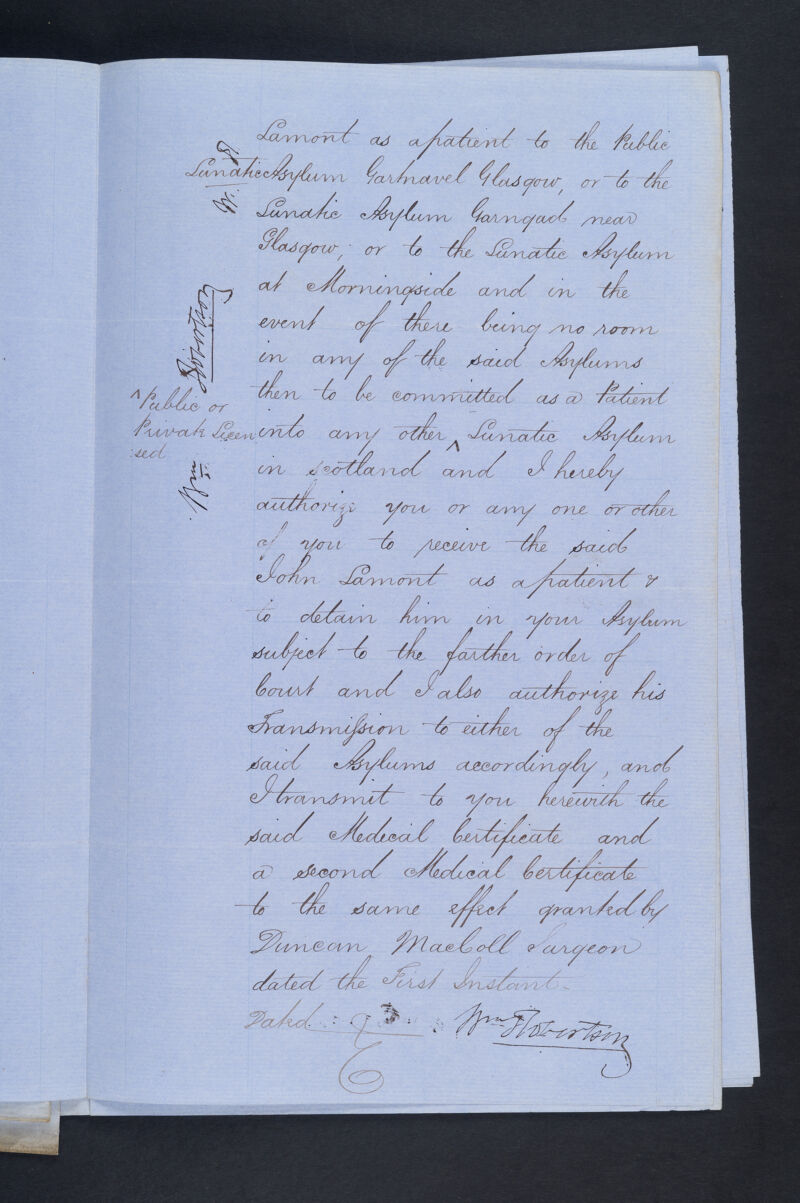 Lamont as a patient to the Public
Lunatic Asylum Gartnavel Glasgow, or to the
Lunatic Asylum Garngad near
Glasgow, or to the Lunatic Asylum
at Morningside and in the
event of there being no room
in any of the said Asylums
then to be committed as a Patient
^ Public or
Private Licen
:sed
into any other ^ Lunatic Asylum
in Scotland and I hereby
authorize you or any one or other
of you to receive the said
John Lamont as a patient &
to detain him in your Asylum
subject to the farther order of
Court and I also authorize his
Transmission to either of the
said Asylums accordingly, and
I transmit to you herewith the
said Medecal Certificate and
a second Medical Certificate
to the same effect granted by
Duncan MacColl Surgeon
dated the First Instant-
Dated
Wm Robertson
Wm Robertson
W. R